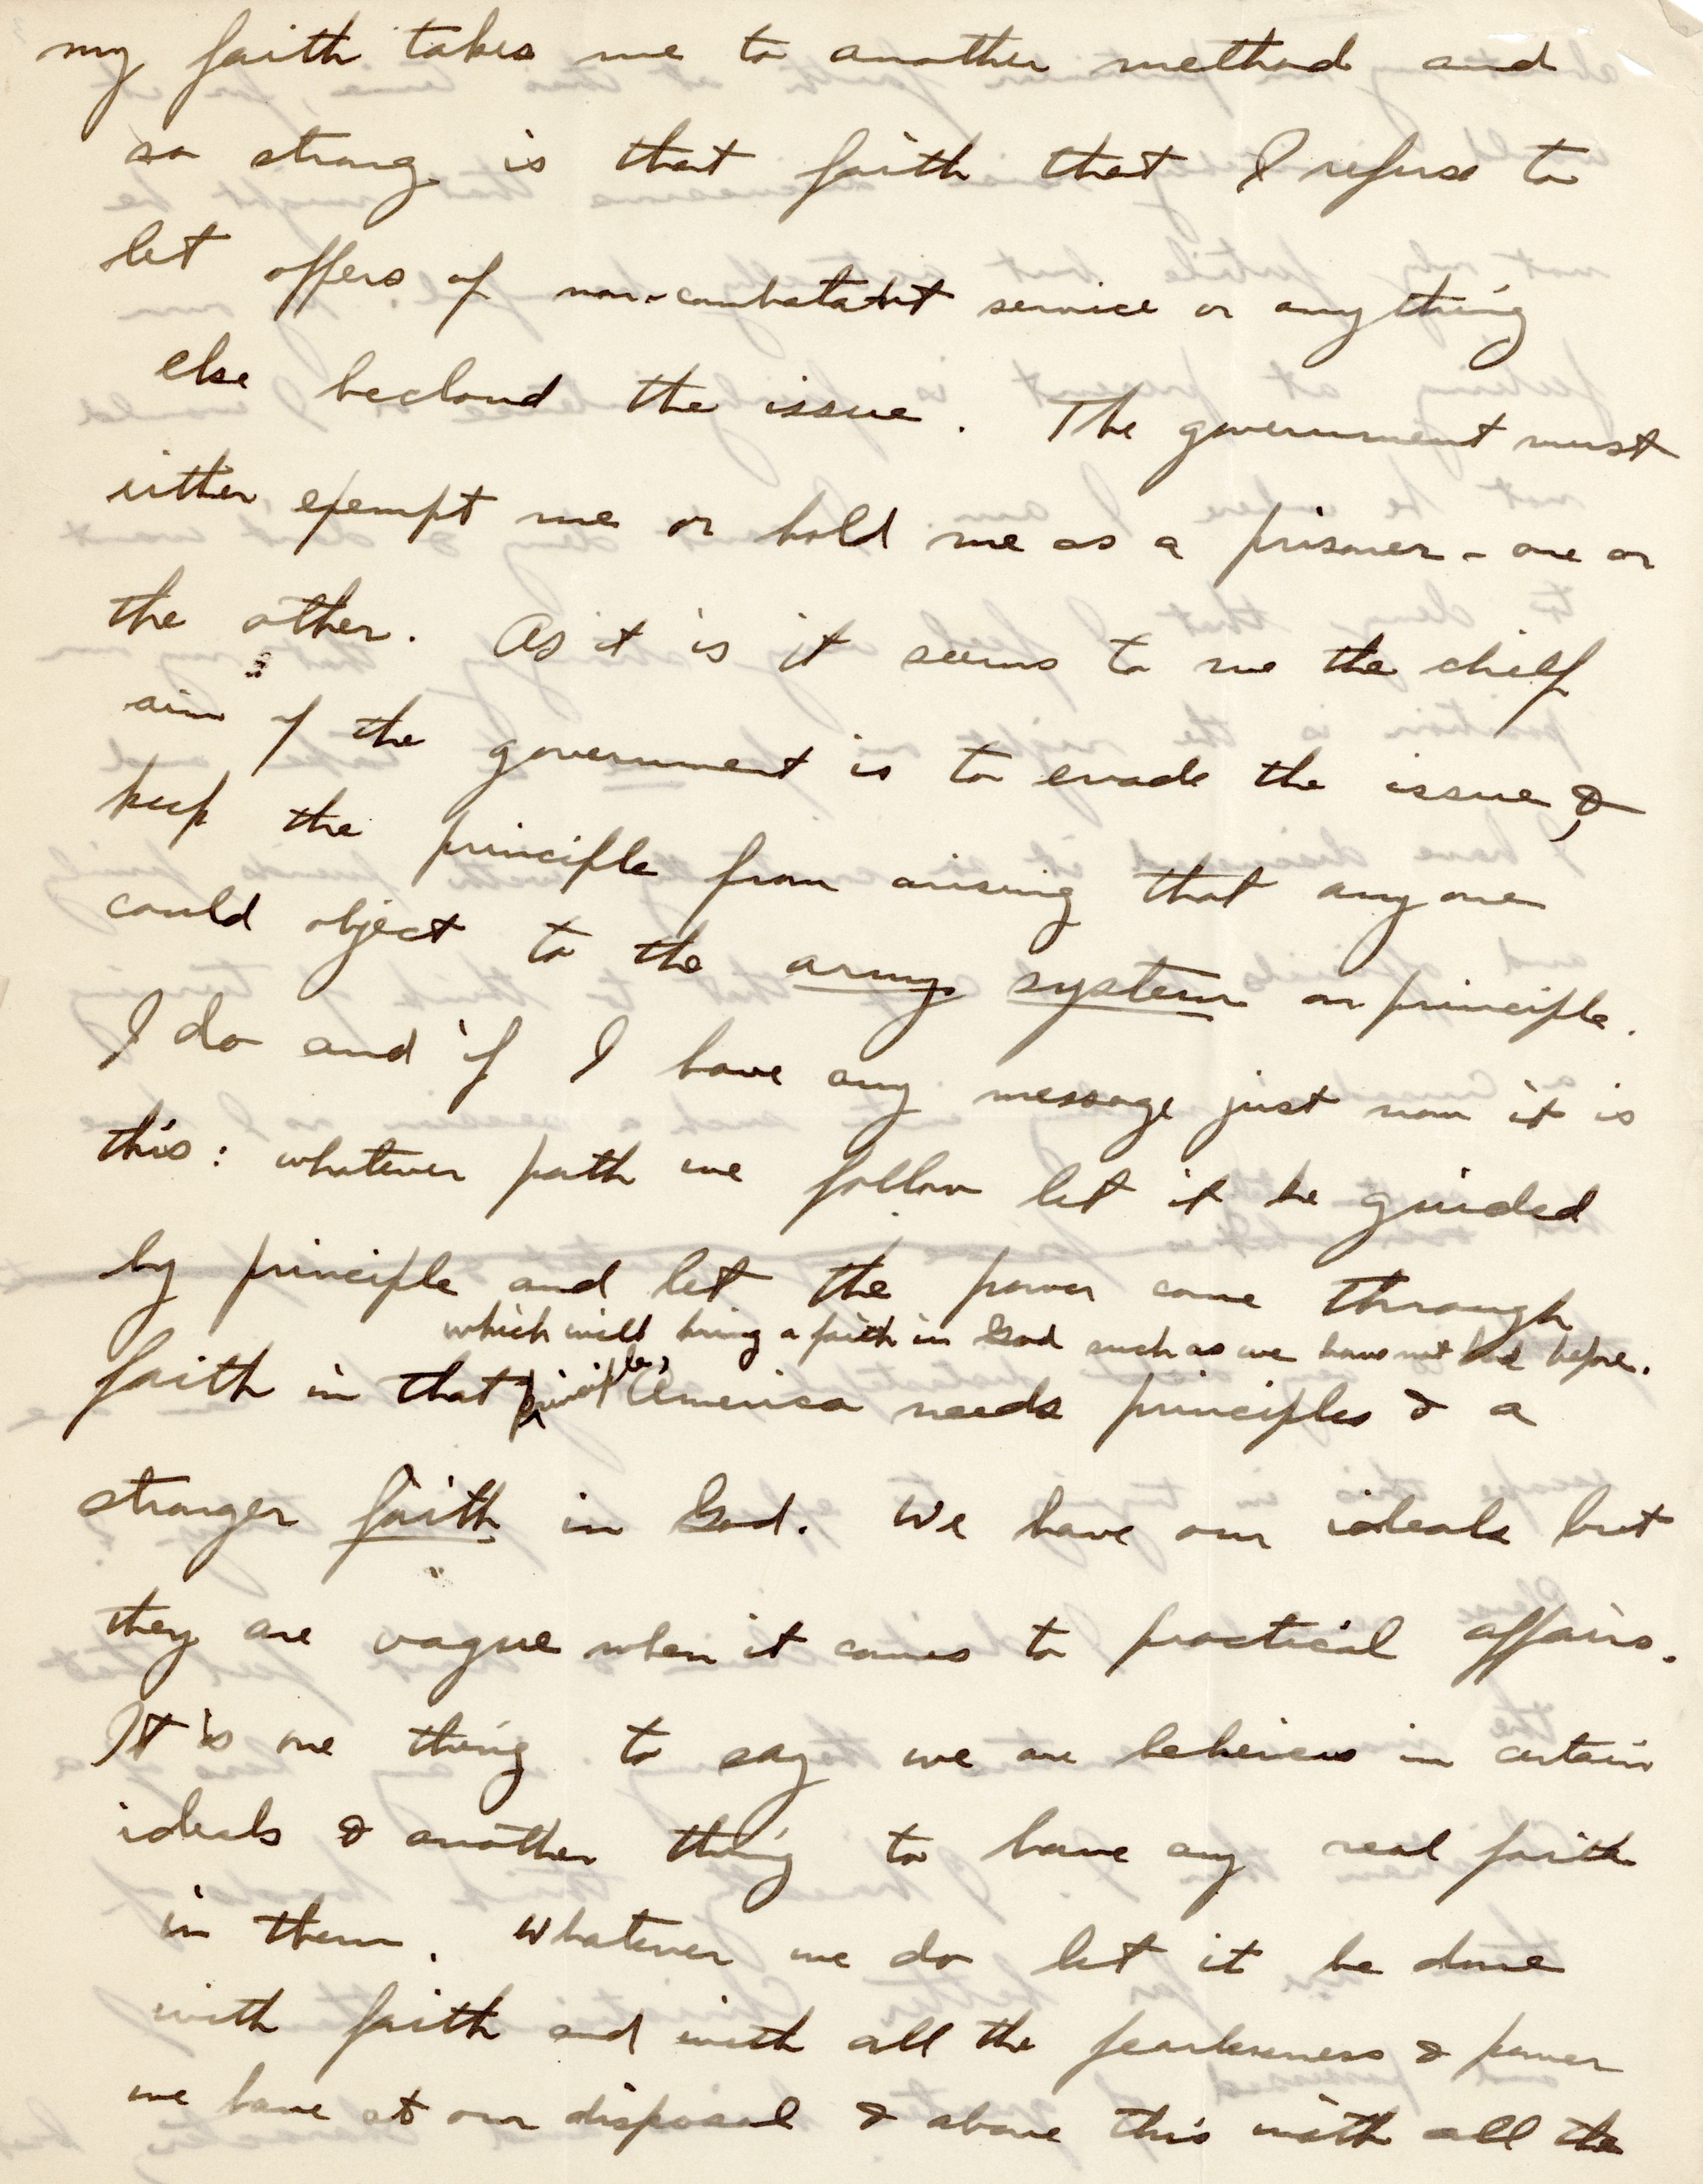 my faith takes me to another method and
so strong is that faith that I refuse to
let offers of non-combatant service or anything
else becloud the issue. The government must
either exempt me or hold me as a prisoner - one or
the other. As it is it seems to me the chief
aim of the government is to evade the issue &
keep the principle from arising that any one
could object to the army system on principle.
I do and if I have any message just now it is
this: whatever path we follow let it be guided
by principle and let the power come through
which will bring a faith in God such as we have not had before.
faith in that principle, America needs principles & a
stronger faith in God. We have our ideals but
they are vague when it comes to practical affairs.
It is one thing to say we are believers in certain
ideals & another thing to have any real faith
in them. Whatever we do let it be done
with faith and with all the fearlessness & power
we have at our disposal & above this with all the